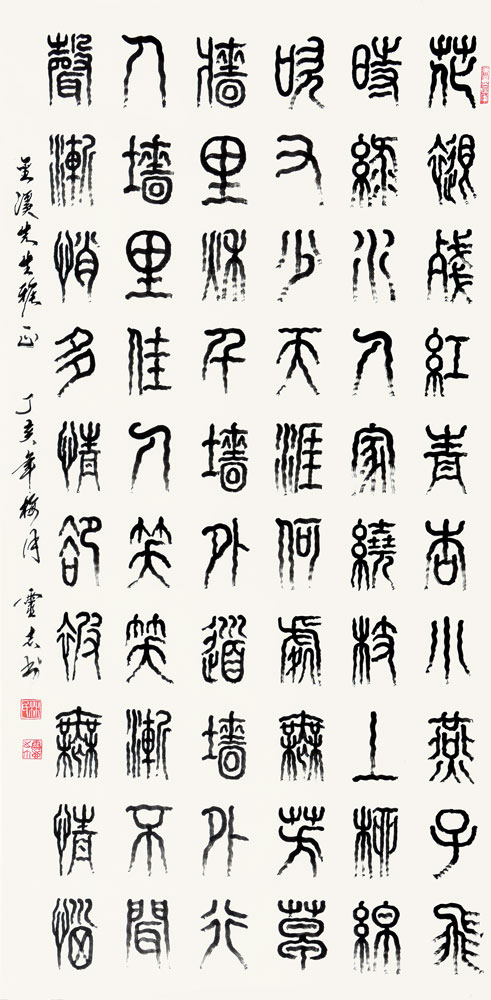 花褪殘紅青杏小燕子飛
時綠水人家繞枝上柳綿
吹又少天涯何處無芳草
牆里秋千墻外道墻外行
人墻里佳人笑笑漸不聞
聲漸悄多情卻被無情惱
溪先生雅正 丁亥年梅月